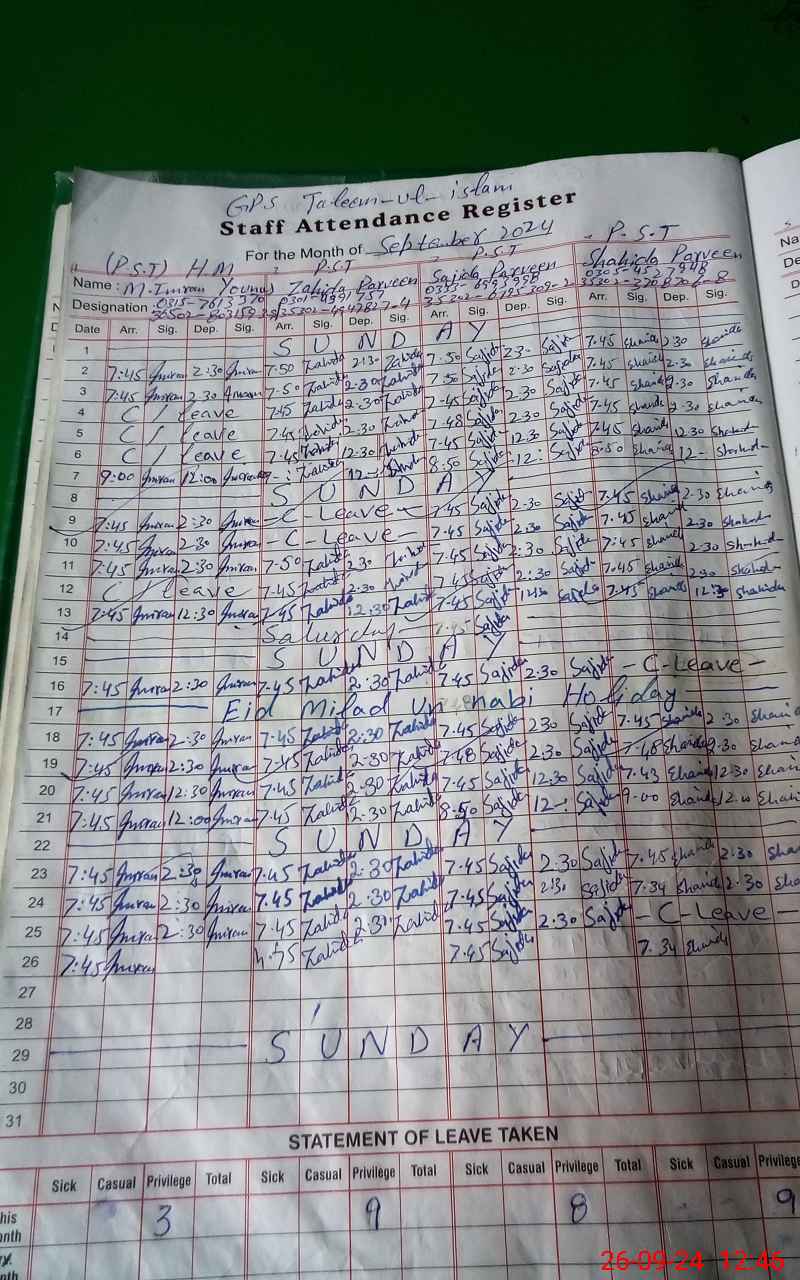 GPS Taleem-ul-islam
Staff Attendance Register
For the Month of September 2024
(P.S.T) H.M P.S.T P.S.T P.S.T
Name : M.Imran Younus Zahida Parveen Sajida Parveen Shahida Parveen
Designation
Date Arr. Sig. Dep. Sig. Arr. Sig. Dep. Sig. Arr. Sig. Dep. Sig. Arr. Sig. Dep. Sig.
1 S U N D A Y
2 7:45 Imran 2:30 Imran 7:50 Zahida 2:30 Zahida 7:50 Sajida 2:30 Sajida 7:45 Shahida 2:30 Shahida
3 7:45 Imran 2:30 Imran 7:50 Zahida 2:30 Zahida 7:50 Sajida 2:30 Sajida 7:45 Shahida 2:30 Shahida
4 C / leave 7:45 Zahida 2:30 Zahida 7:45 Sajida 2:30 Sajida 7:45 Shahida 2:30 Shahida
5 C / leave 7:45 Zahida 2:30 Zahida 7:48 Sajida 2:30 Sajida 7:45 Shahida 2:30 Shahida
6 C / leave 7:45 Zahida 12:30 Zahida 7:45 Sajida 12:30 Sajida 7:45 Shahida 12:30 Shahida
7 9:00 Imran 12:00 Imran Zahida 12 8:50 Sajida 12: Sajida 8:50 Shahida 12- Shahida
8 S U N D A Y
9 7:45 Imran 2:30 Imran -C-Leave- 7:45 Sajida 2:30 Sajida 7:45 Shahida 2:30 Shahida
10 7:45 Imran 2:30 Imran -C-Leave- 7:45 Sajida 2:30 Sajida 7:45 Shahida 2:30 Shahida
11 7:45 Imran 2:30 Imran 7:50 Zahida 2:30 Zahida 7:45 Sajida 2:30 Sajida 7:45 Shahida 2:30 Shahida
12 C / leave 7:45 Zahida 2:30 Zahida 7:45 Sajida 2:30 Sajida 7:45 Shahida 2:30 Shahida
13 7:45 Imran 12:30 Imran 7:45 Zahida 12:30 Zahida 7:45 Sajida 12:30 Sajida 7:45 Shahida 12:30 Shahida
14 Saturday 7:45 Sajida
15 S U N D A Y
16 7:45 Imran 2:30 Imran 7:45 Zahida 2:30 Zahida 7:45 Sajida 2:30 Sajida -C-Leave-
17 Eid Milad Un nabi Holiday
18 7:45 Imran 2:30 Imran 7:45 Zahida 2:30 Zahida 7:45 Sajida 2:30 Sajida 7:45 Shahida 2:30 Shahida
19 7:45 Imran 2:30 Imran 7:45 Zahida 2:30 Zahida 7:48 Sajida 2:30 Sajida 7:48 Shahida 2:30 Shahida
20 7:45 Imran 12:30 Imran 7:45 Zahida 2:30 Zahida 7:45 Sajida 12:30 Sajida 7:43 Shahida 12:30 Shahida
21 7:45 Imran 12:00 Imran 7:45 Zahida 2:30 Zahida 8:50 Sajida 12-: Sajida 9:00 Shahida 12:00 Shahida
22 S U N D A Y
23 7:45 Imran 2:30 Imran 7:45 Zahida 2:30 Zahida 7:45 Sajida 2:30 Sajida 7:45 Shahida 2:30 Shahida
24 7:45 Imran 2:30 Imran 7:45 Zahida 2:30 Zahida 7:45 Sajida 2:30 Sajida 7:34 Shahida 2:30 Shahida
25 7:45 Imran 2:30 Imran 7:45 Zahida 2:31 Zahida 7:45 Sajida 2:30 Sajida -C-Leave-
26 7:45 Imran Zahida 7:45 Sajida 7:34 Shahida
27
28
29 S U N D A Y
30
31
STATEMENT OF LEAVE TAKEN
Sick Casual Privilege Total Sick Casual Privilege Total Sick Casual Privilege Total Sick Casual Privilege
3 9 8 9
26-09-24 12:46